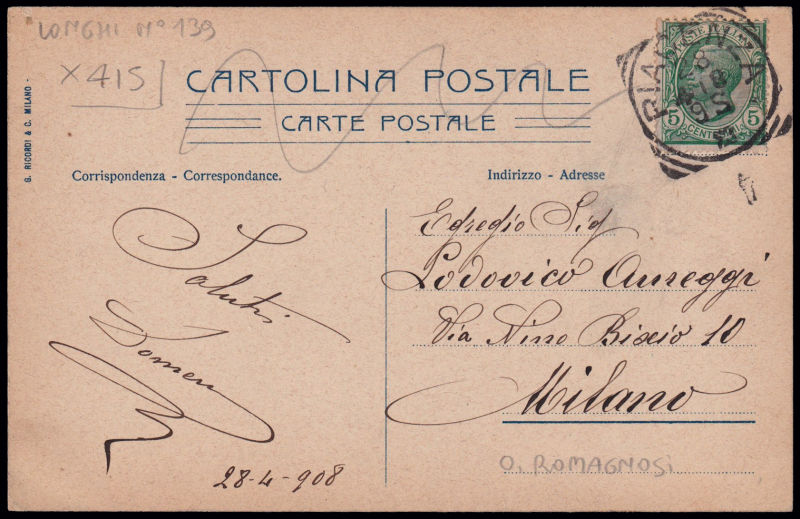 LONGHI N° 139
X 415
G. RICORDI & C. MILANO -
CARTOLINA POSTALE
CARTE POSTALE
Corrispondenza - Correspondance.
Indirizzo - Adresse
POSTE ITALIANE
5 CENTESIMI 5
PIACENZA
Saluti
28-4-908
Egregio Sig
Lodovico Aureggi
Via Nino Bixio 10
Milano
O. ROMAGNOSI